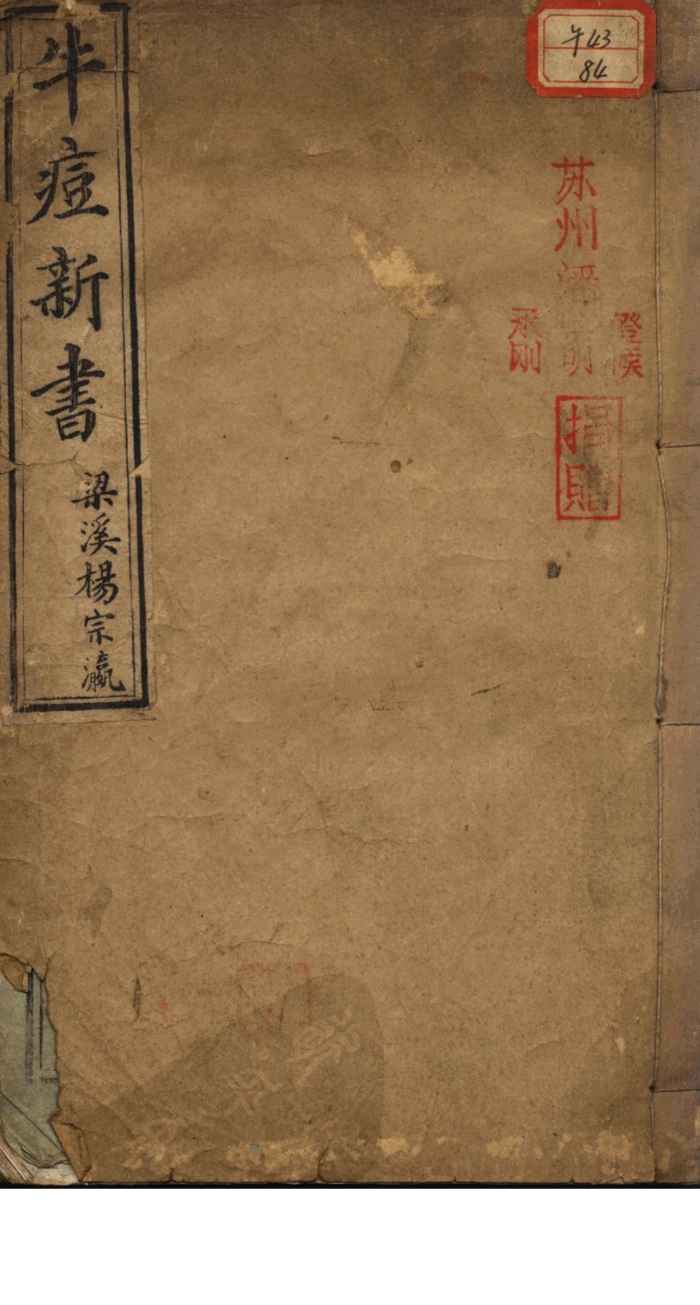 牛痘新書
梁溪楊宗瀛
午43
84
苏州潘
捐贈